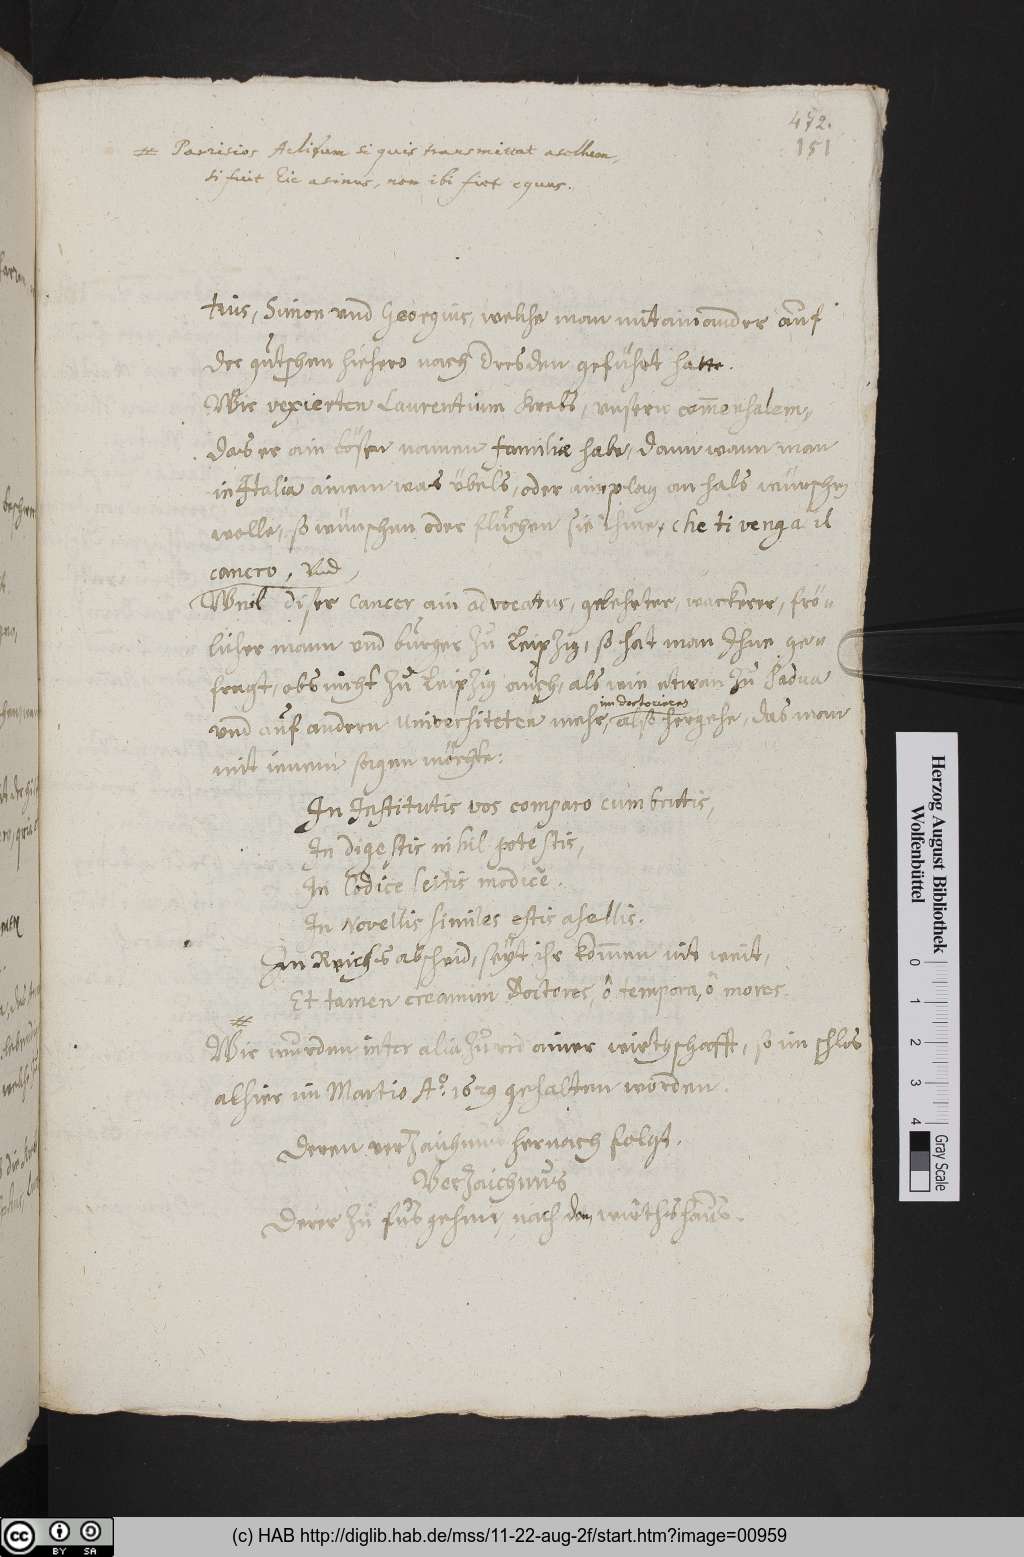 472.
151
# Parrisios stolidum si quis transmittat asellum,
si fuit hic asinus, non ibi fiet equus.
trus, Simon vnd Georgius, welche man mitainander auf
der gutschen hiehero nach Dresden gefuhrt hatte.
Wir vexierten Laurentium Krebß, vnsern com̄ensalem,
das er ain bösen namen familiæ habe, dann wann man
in Italia ainem was übels, oder ain plag an hals wünschen
wolle, so wünschen oder fluchen sie ihme, che ti venga il
cancro, Vnd,
Weil diser Cancer ain advocatus, gelehrter, wackerer, frö-
licher mann vnd burger zu Leipzig, so hat man Ihne ge-
fragt, obs nicht zu Leipzig auch, als wie etwan zu Padua
im doctorieren
vnd auf andern Universiteten mehr, also hergehe, das man
mit ienem sagen möchte:
In Institutis vos comparo cum brutis,
In digestis nihil potestis,
In Codice scitis modicè.
In Novellis similes estis asellis.
In Reichs abscheid, seyt ihr kom̄en nit weit,
Et tamen creamini Doctores, ô tempora, ô mores.
#
Wir wurden inter alia zu ainer wirtschafft, so im schlos
alhier im Martio Aº. 1629 gehalten worden.
Deren verzaichnus hernach folgt.
Verzaichnus
Derer zu fus gehent nach dem wirthshaus.
Herzog August Bibliothek
Wolfenbüttel
0 1 2 3 4
Gray Scale
cc BY SA
(c) HAB http://diglib.hab.de/mss/11-22-aug-2f/start.htm?image=00959